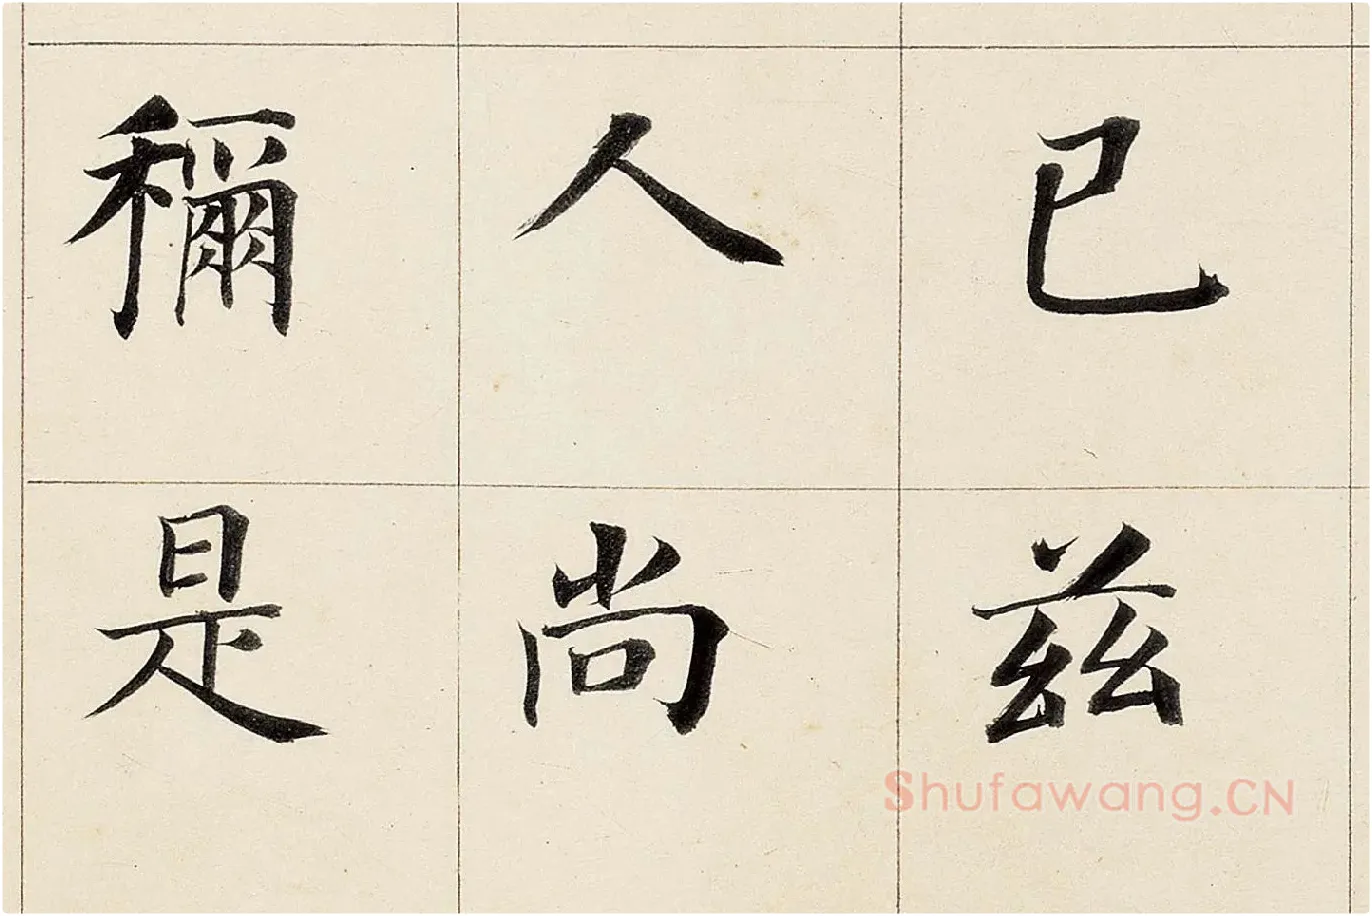 已兹
人尚
穪是
Shufawang.CN